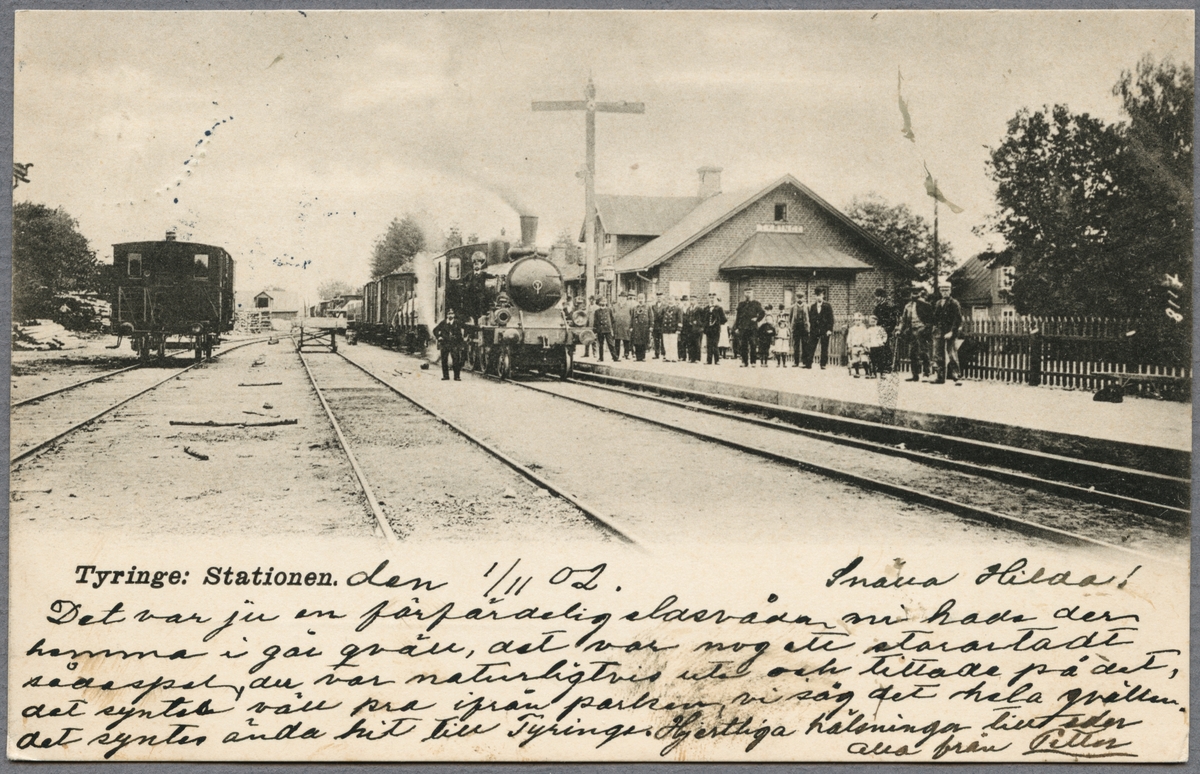 TYRINGE
718
Tyringe: Stationen. den 1/11 02. Snälla Hilda!
Det var ju en förfärdelig eldsvåda ni hade der
hemma i går qväll, det var nog ett storartadt
skådespel, du var naturligtvis ute och tittade på det,
det syntes väll bra ifrån parken, vi såg det hela qvällen.
det syntes ända hit till Tyringe. Hjertliga hälsningar till eder
alla från